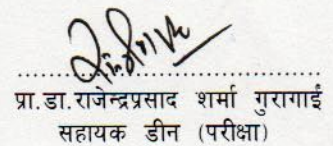 प्रा.डा.राजेन्द्रप्रसाद शर्मा गुरागाईं
सहायक डीन (परीक्षा)